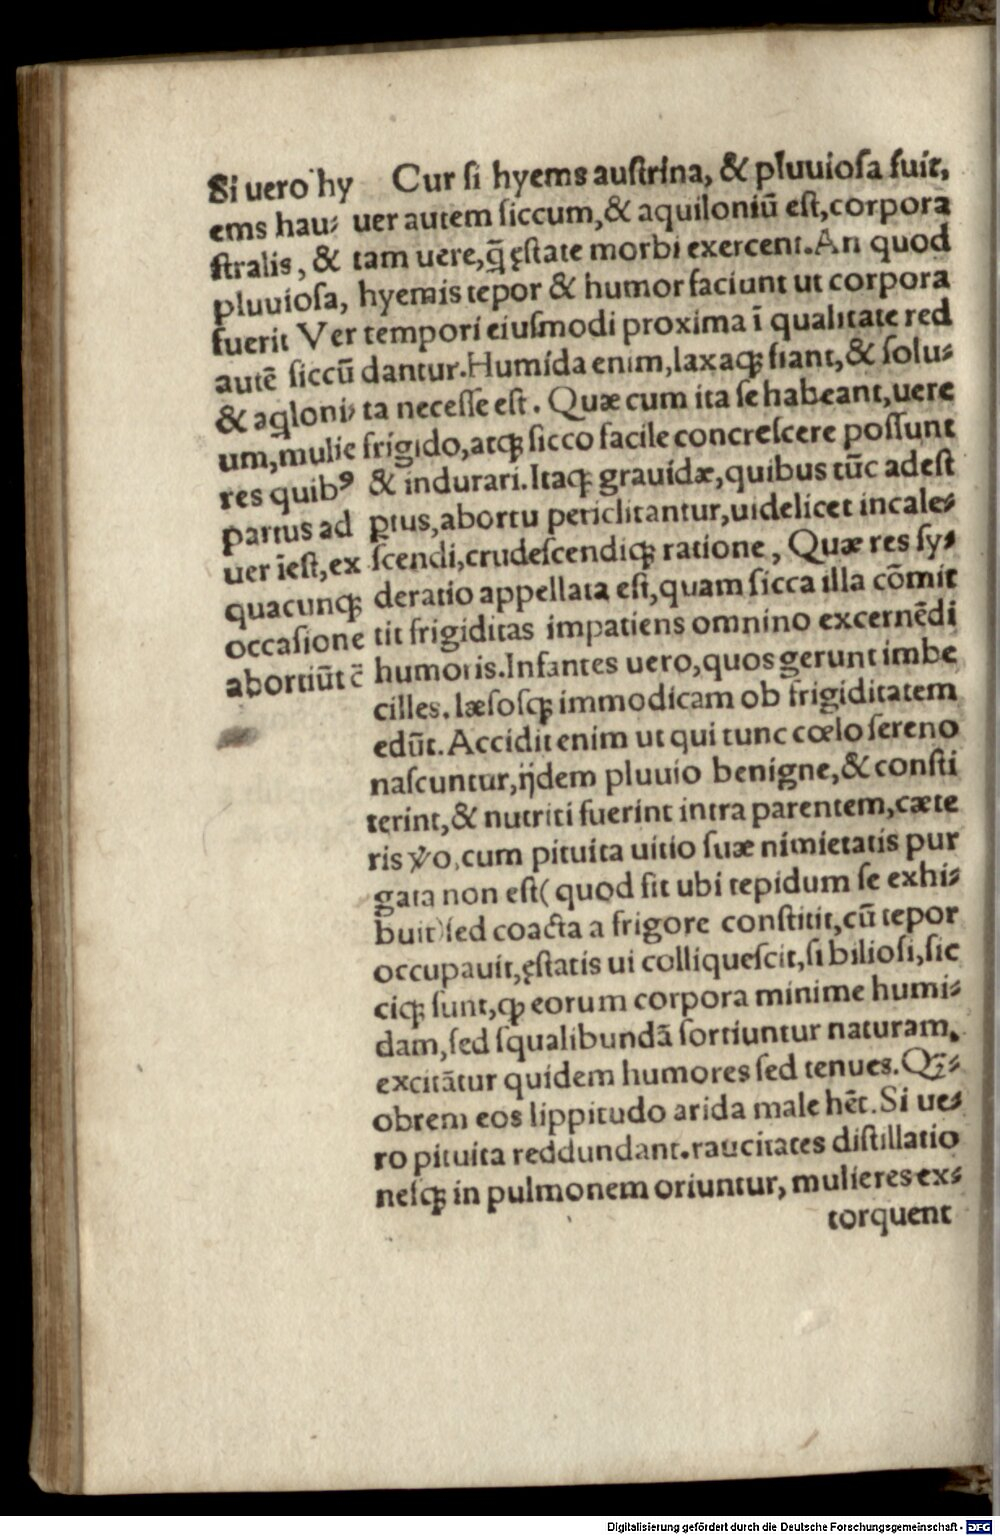 Si uero hy
ems hau⸗
ſtralis, &
pluuioſa,
fuerit Ver
autē ſiccū
& aq̈loni⸗
um, mulie
res quibꝰ
partus ad
uer īeſt, ex
quacunqꝫ
occaſione
abortiūt c̄
Cur ſi hyems auſtrina, & pluuioſa fuit,
uer autem ſiccum, & aquiloniū eſt, corpora
tam uere, q̄̈ ęſtate morbi exercent. An quod
hyemis tepor & humor faciunt ut corpora
tempori eiuſmodi proxima ī qualitate red
dantur. Humida enim, laxaqꝫ fiant, & ſolu⸗
ta neceſſe eſt. Quæ cum ita ſe habeant, uere
frigido, atqꝫ ſicco facile concreſcere poſſunt
& indurari. Itaqꝫ grauidæ, quibus tūc adeſt
ꝑtus, abortu periclitantur, uidelicet incale⸗
ſcendi, crudeſcendiqꝫ ratione, Quæ res ſy⸗
deratio appellata eſt, quam ſicca illa cōmit
tit frigiditas impatiens omnino excernēdi
humoris. Infantes uero, quos gerunt imbe
cilles. læſoſqꝫ immodicam ob frigiditatem
edūt. Accidit enim ut qui tunc cœlo ſereno
naſcuntur, ijdem pluuio benigne, & conſti
terint, & nutriti fuerint intra parentem, cæte
ris v̊o, cum pituita uitio ſuæ nimietatis pur
gata non eſt (quod fit ubi tepidum ſe exhi⸗
buit) ſed coacta a frigore conſtitit, cū tepor
occupauit, ęſtatis ui colliqueſcit, ſi bilioſi, ſic
ciqꝫ ſunt, ꝙ eorum corpora minime humi⸗
dam, ſed ſqualibundā ſortiuntur naturam.
excitātur quidem humores ſed tenues. Qꝫ̄⸗
obrem eos lippitudo arida male hēt. Si ue⸗
ro pituita reddundant. raucitates diſtillatio
neſqꝫ in pulmonem oriuntur, mulieres ex⸗
torquent
Digitalisierung gefördert durch die Deutsche Forschungsgemeinschaft - DFG